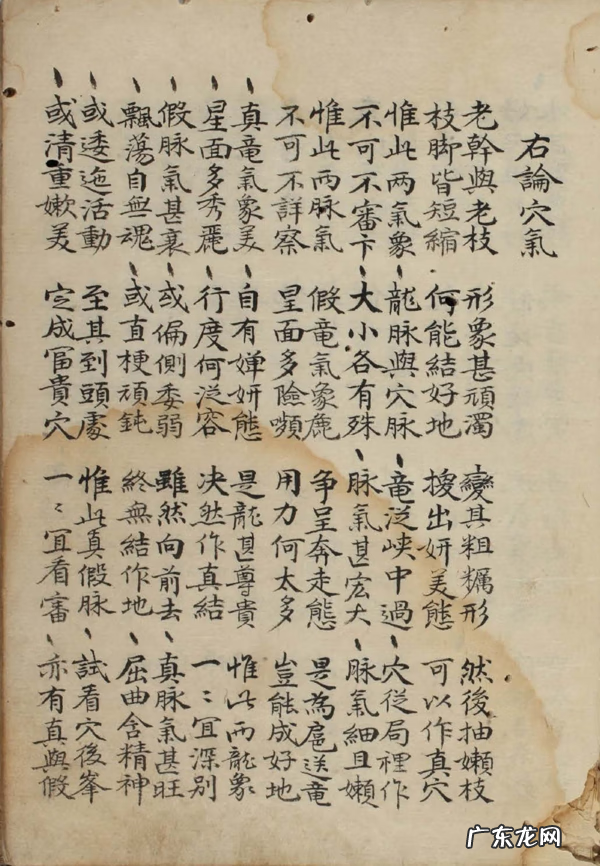 右論穴氣
老幹與老枝 形象甚頑濁 變其粗糲形 然後抽嫩枝
枝脚皆短縮 何能結好地 換出妍美態 可以作真穴
惟此两氣象 龍脉與穴脉 竜泛峽中過 穴從局裡作
不可不審卞 大小各有殊 脉氣甚宏大 脉氣細且嫩
惟此两脉氣 假竜氣象麁 争呈奔走態 是為扈送竜
不可不詳察 星面多險 用力何太多 豈能成好地
真竜氣象美 自有嬋妍態 是龍甚尊貴 惟此两龍象
星面多秀麗 行度何泛容 决然作真結 一〻冝深別
假脉氣甚衰 或偏側委弱 雖然向前去 真脉氣甚旺
飄蕩自無魂 或直梗頑鈍 終無結作地 屈曲含精神
或逶迤活動 至其到頭處 惟此真假脉 試看穴後峯
或清重嫩美 定成冨貴穴 一〻冝看審 亦有真與假
广东龙网